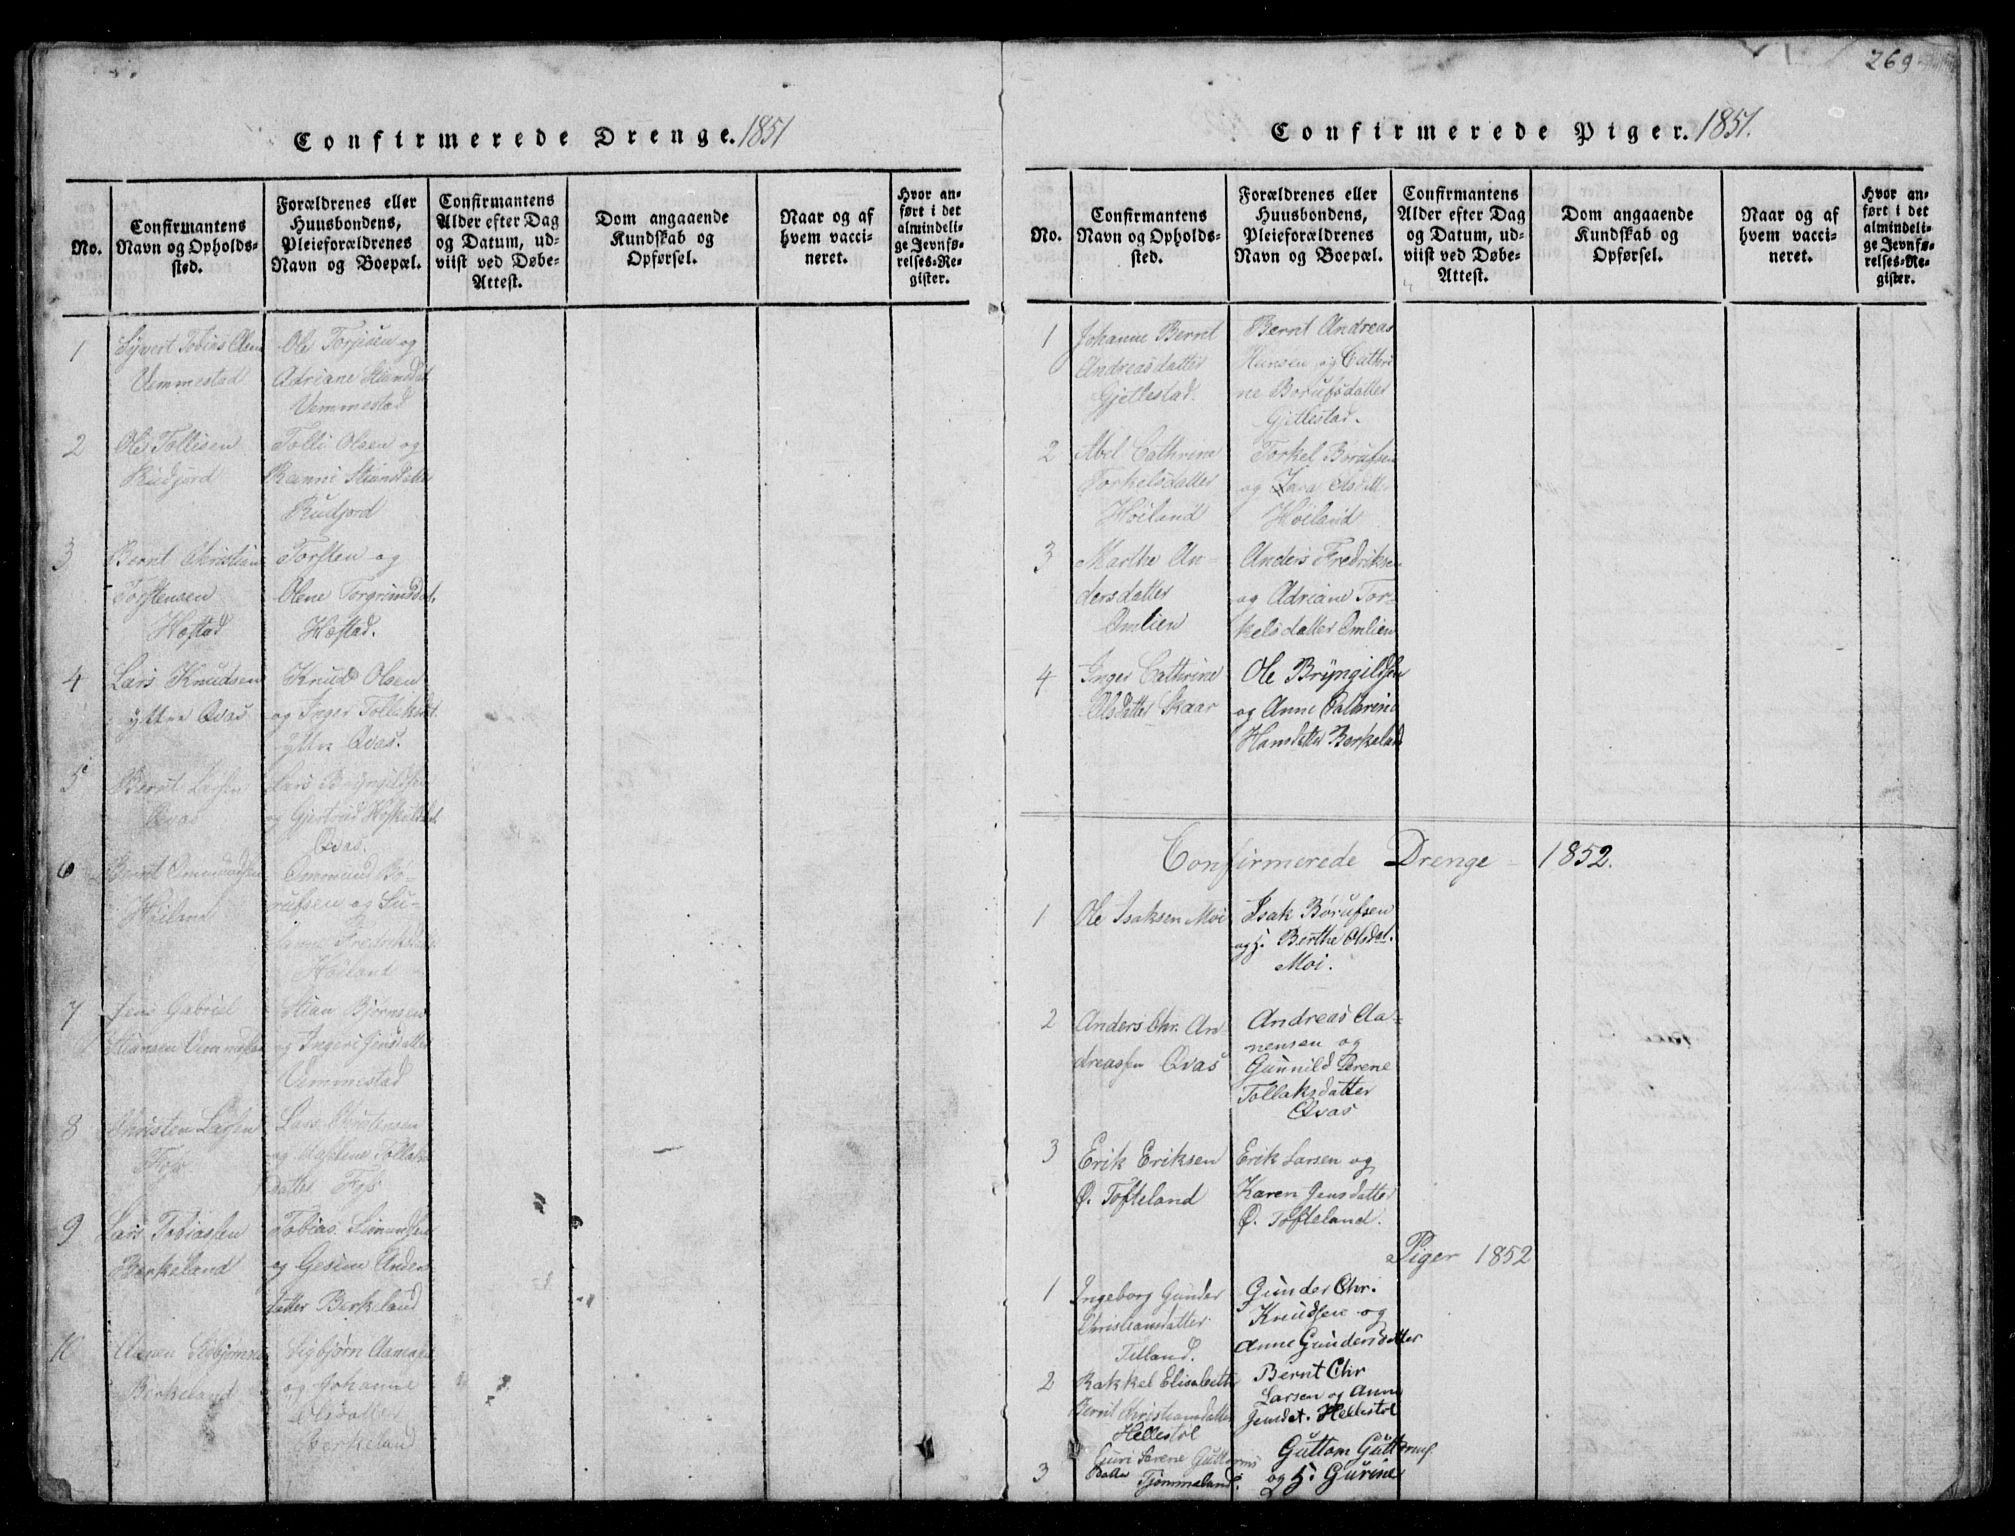 269
Confirmerede Drenge. 1851
No.
Confirmantens Navn og Opholds-sted.
Forældrenes eller Huusbondens, Pleieforældrenes Navn og Boepæl.
Confirmantens Alder efter Dag og Datum, ud-viist ved Døbe-Attest.
Dom angaaende Kundskab og Opførsel.
Naar og af hvem vacci-neret.
Hvor an-ført i det almindeli-ge Jevnfø-relses-Re-gister.
1
Syvert Tobias Olsen
Vemmestad
Ole Torjusen og
Adriane
Vemmestad
2
Ole Tollisen
Rudjord
Tolli Olsen og
Ranni Stiansdatter
Rudjord
3
Bernt Christian
Torstensen
Høstad
Torsten og
Olene Torgrimsdat.
Høstad.
4
Lars Knudsen
yttre Qvas
Knud Olsen
og Inger
yttre Qvas.
5
Bernt Larsen
Qvas
Lars Bryngildsen
og Gjertrud
Qvas.
6
Bernt Ommundsen
Høiland
Ommund Bø-
rufsen og Su-
sanne Fredriksdat.
Høiland
7
Jens Gabriel
Stiansen Vemmestad
Stian Bjørnsen
og Ingeri Jensdatter
Vemmestad
8
Christen Larsen
Foss
Lars Christensen
og Tollaks
datter Foss
9
Lars Tobiassen
Birkeland
Tobias Simonsen
og Gesine Anders
datter Birkeland
10
Aanen Sigbjørnsen
Birkeland
Sigbjørn Aanensen
og Johanne
Olsdatter
Birkeland
Confirmerede Piger. 1851.
No.
Confirmantens Navn og Opholds-sted.
Forældrenes eller Huusbondens, Pleieforældrenes Navn og Boepæl.
Confirmantens Alder efter Dag og Datum, ud-viist ved Døbe-Attest.
Dom angaaende Kundskab og Opførsel.
Naar og af hvem vacci-neret.
Hvor an-ført i det almindeli-ge Jevnfø-relses-Re-gister.
1
Johanne Bernt
Andreasdatter
Gjellestad.
Bernt Andreas
Hansen og Cathri
ne Børufsdatter
Gjellestad.
2
Abel Cathrine
Torkelsdatter
Høiland
Torkel Børufsen
og
Høiland
3
Marthe An-
dersdatter
Omlien
Anders Fredriksen
og Adriane Tor-
kelsdatter Omlien
4
Inger Cathrine
Olsdatter Skaar
Ole Bryngildsen
og Anne Cathrine
Hansdatter Berkeland
Confirmerede Drenge - 1852.
1
Ole Isaksen Moi
Isak Børufsen
og H. Berthe Olsdat.
Moi.
2
Anders Chr. An
dreassen Qvas
Andreas Aa-
nensen og
Gunnild Serene
Tollaksdatter
Qvas
3
Erik Eriksen
Ø. Tofteland
Erik Larsen og
Karen Jensdatter
Ø. Tofteland.
Piger 1852
1
Ingeborg Gunder
Christiansdatter
Tilland.
Gunder Chr.
Knudsen og
Anne Gundersdatter
2
Rakkel Elisabeth
Bernt Christiansdatter
Hellestøl
Bernt Chr
Larsen og Anne
Jensdat. Hellestøl
3
Guri Serene Guttorms
datter Tjømmeland.
Guttom Guttorms.
og H. Gurine